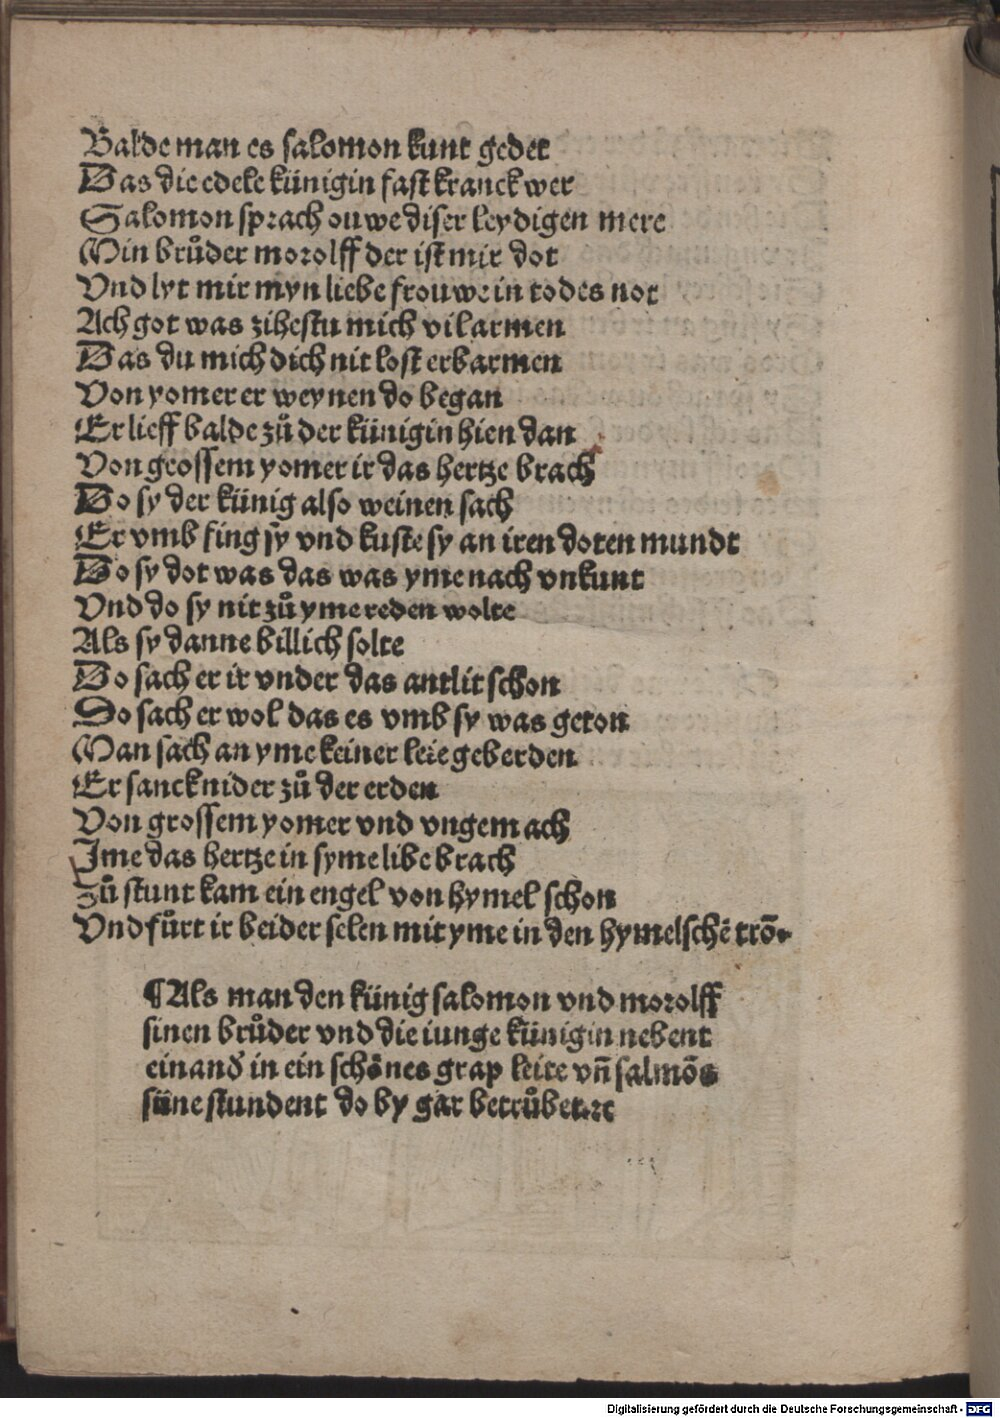 Balde man es salomon kunt gedet
Das die edele künigin fast kranck wer
Salomon sprach ouwe diser leydigen mere
Min brůder morolff der ist mir dot
Vnd lyt mir myn liebe frouwe in todes not
Ach got was zihestu mich vil armen
Das du mich dich nit lost erbarmen
Von yomer er weynen do began
Er lieff balde zů der künigin hien dan
Von grossem yomer ir das hertze brach
Do sy der künig also weinen sach
Er vmb fing sy vnd kuste sy an iren doten mundt
Do sy dot was das was yme nach vnkunt
Vnd do sy nit zů yme reden wolte
Als sy danne billich solte
Do sach er ir vnder das antlit schon
Do sach er wol das es vmb sy was geton
Man sach an yme keiner leie geberden
Er sanck nider zů der erden
Von grossem yomer vnd vngemach
Ime das hertze in syme libe brach
Zů stunt kam ein engel von hymel schon
Vnd fůrt ir beider selen mit yme in den hymelschē trō.
¶Als man den künig salomon vnd morolff
sinen brůder vnd die iunge künigin nebent
einand̕ in ein schönes grap leite vn̄ salmōs
süne stundent do by gar betrůbet.ꝛc
Digitalisierung gefördert durch die Deutsche Forschungsgemeinschaft - DFG